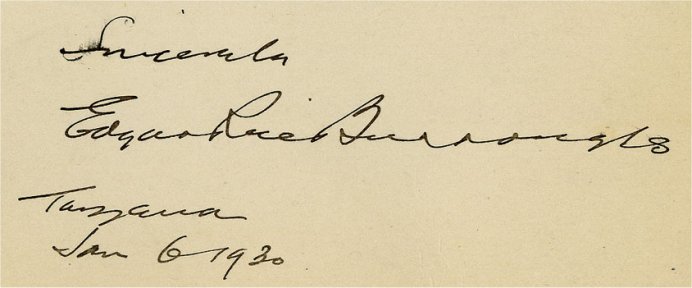 Sincerely
Edgar Rice Burroughs
Tarzana
Jan 6 1930